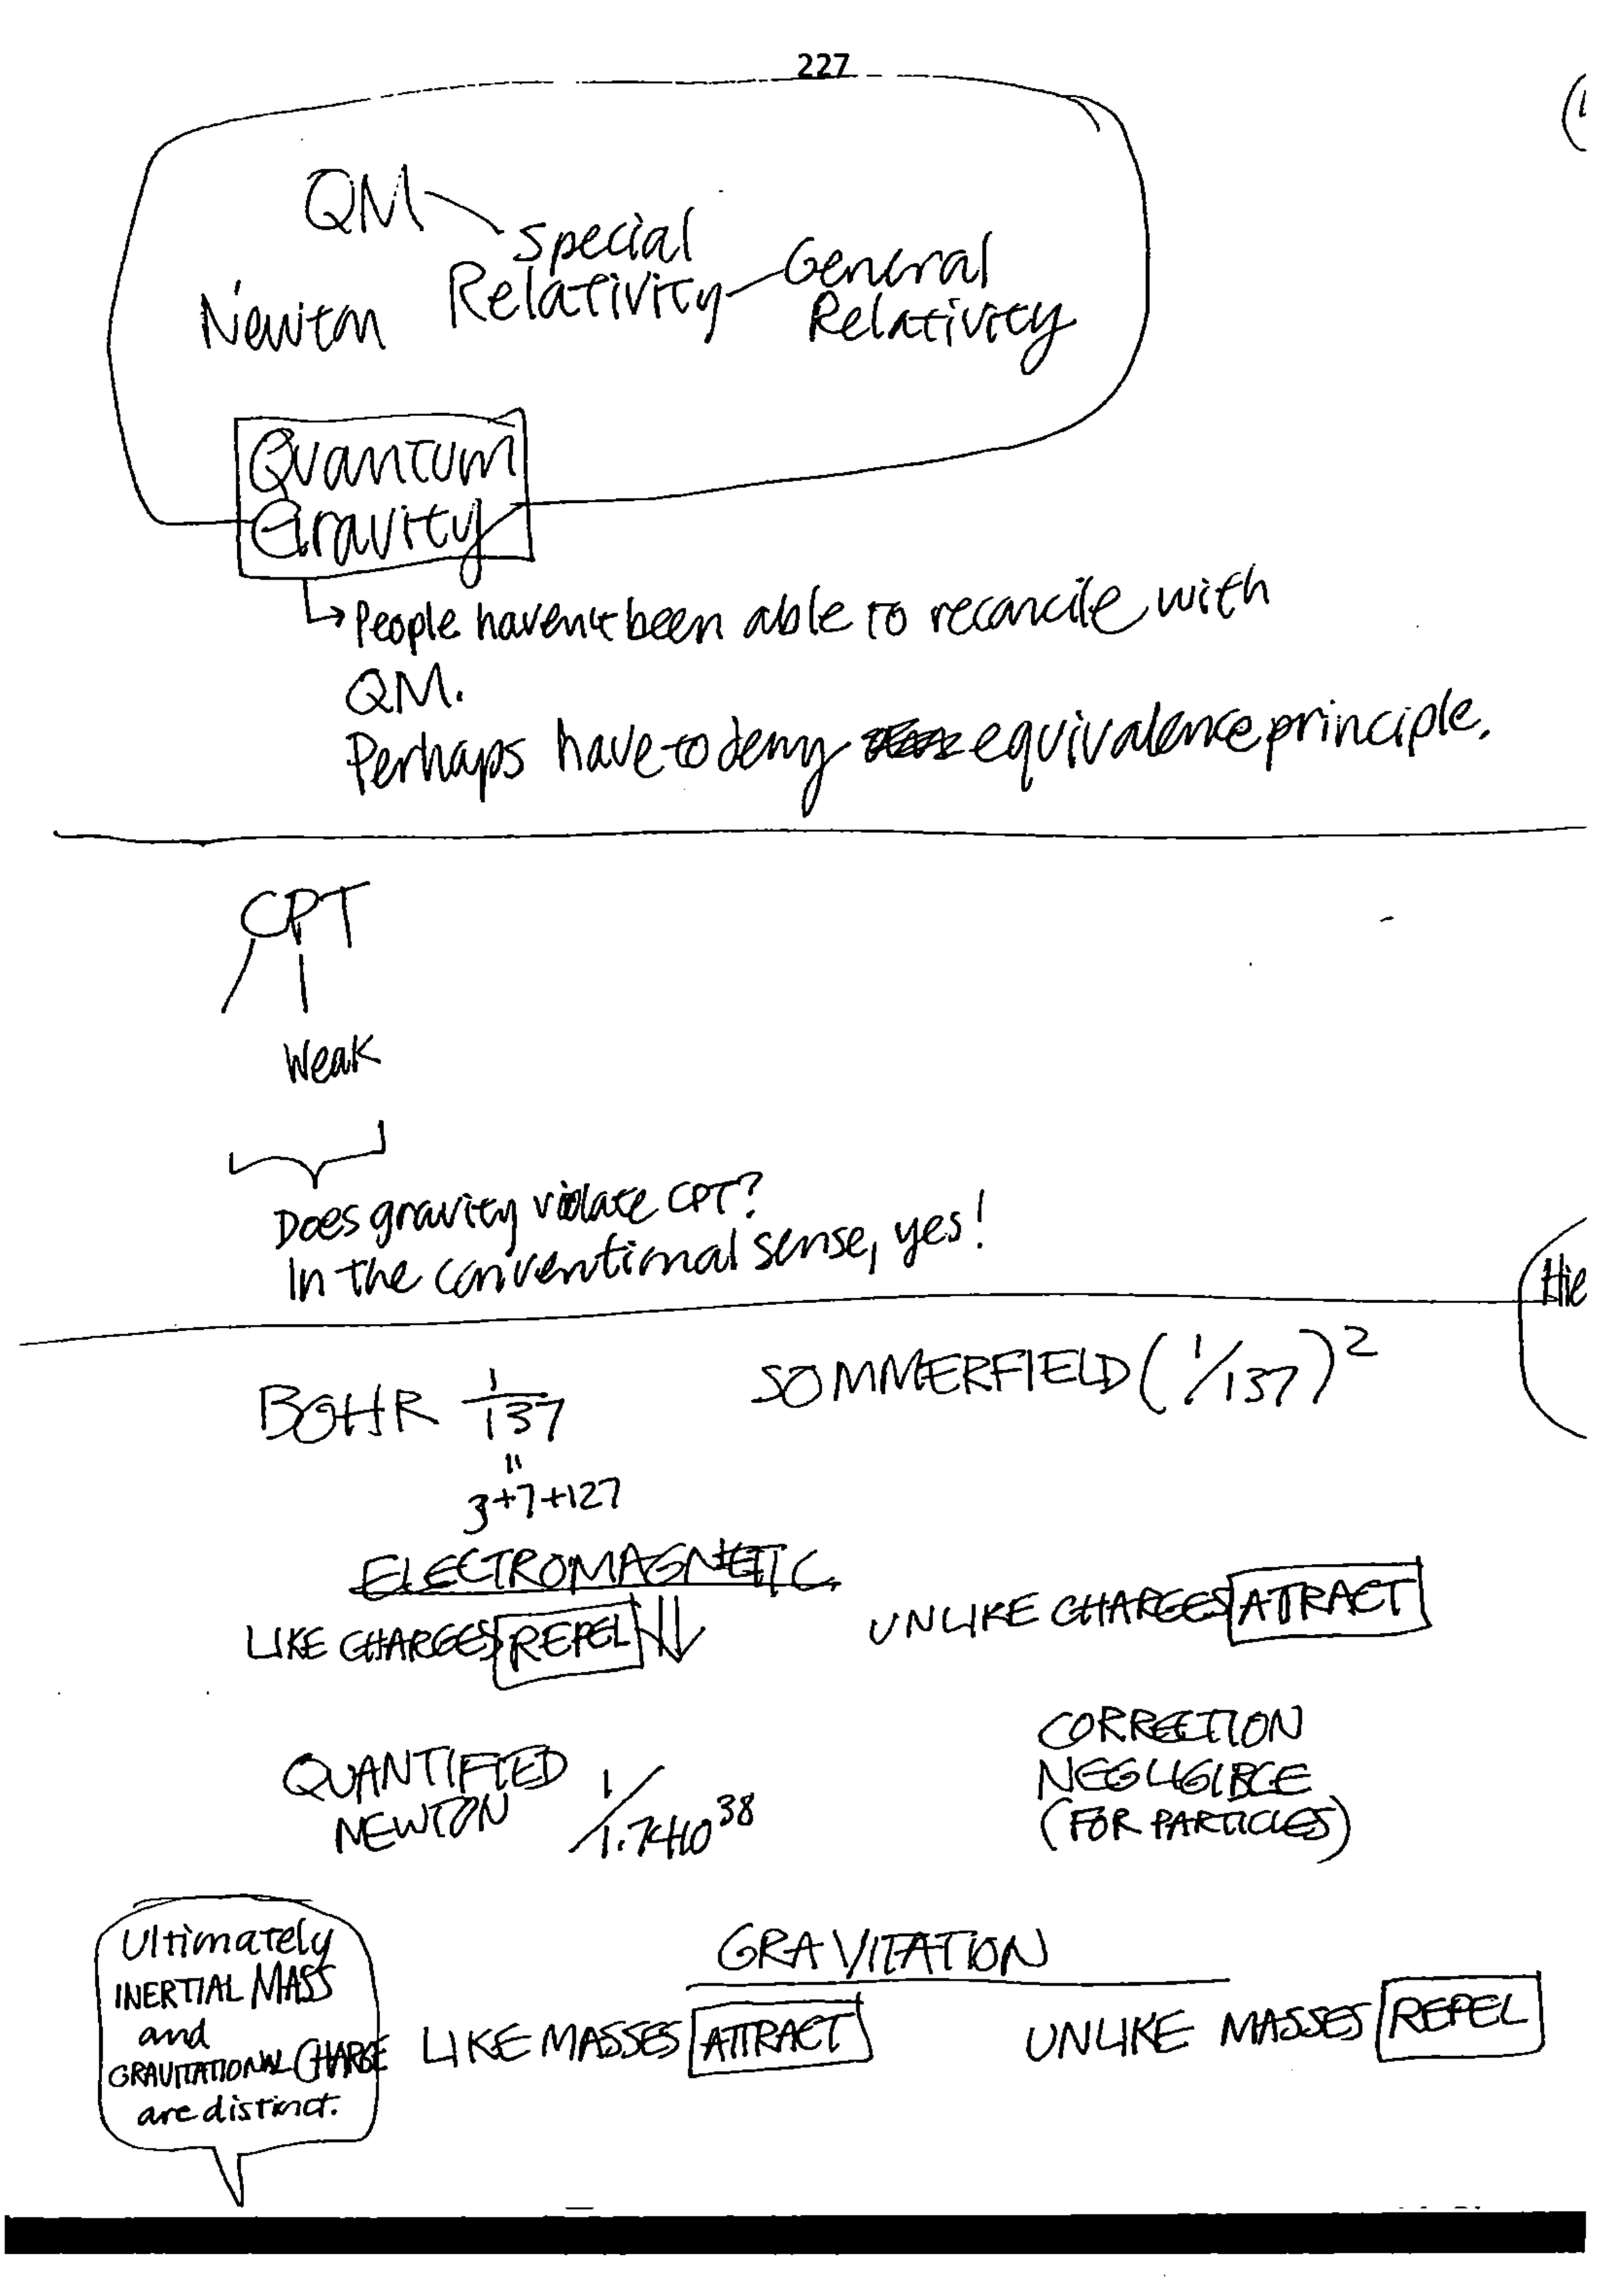 227
QM
Special
Relativity
General
Relativity
Newton
Quantum
Gravity
→ People haven't been able to reconcile with
QM.
Perhaps have to deny equivalence principle.
CPT
Weak
Does gravity violate CPT?
In the conventional sense, yes!
Hie
BOHR 1/137
SOMMERFIELD (1/137)²
"
3+7+127
ELECTROMAGNETIC
LIKE CHARGES REPEL
UNLIKE CHARGES ATTRACT
QUANTIFIED
NEWTON 1/1.7×10³⁸
CORRECTION
NEGLIGIBLE
(FOR PARTICLES)
Ultimately
INERTIAL MASS
and
GRAVITATIONAL CHARGE
are distinct.
GRAVITATION
LIKE MASSES ATTRACT
UNLIKE MASSES REPEL